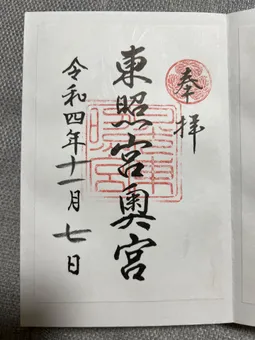 奉拝
東照宮奥宮
令和四年十一月七日